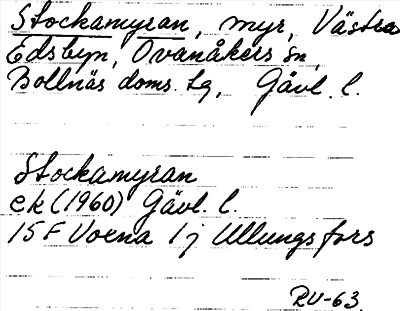 Stockamyran, myr, Västra
Edsbyn, Ovanåkers sn,
Bollnäs doms. tg, Gävl. l.
Stockamyran
ek (1960) Gävl. l.
15 F Voxna 1 j Ullungsfors
RU-63.